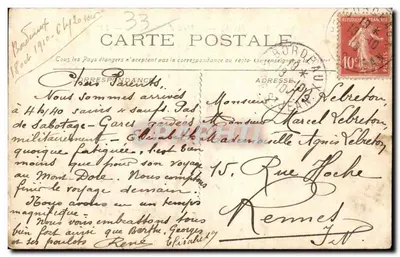 Bordeaux
18 oct 1910 - 6h20 soir
33
CARTE POSTALE
Tous les Pays étrangers n'acceptent pas la correspondance au recto
CORRESPONDANCE
ADRESSE
BORDEAUX
10
Bien Parents.
Nous sommes arrivés
à 4h40 sains et saufs. Pas
de sabotage - Gares gardées
militairement.
quoique fatiguée s'est bien
moins que pour son voyage
au Mont Dore. Nous comptons
finir le voyage demain.
Nous avons eu un temps
magnifique.
Nous vous embrassons tous
bien fort ainsi que Berthe, Georges
et ses poulots René Elisabeth
Monsieur Lebreton
Monsieur Marcel Lebreton
Mademoiselle Agnès Lebreton
15, Rue Hoche
Rennes
I-V.